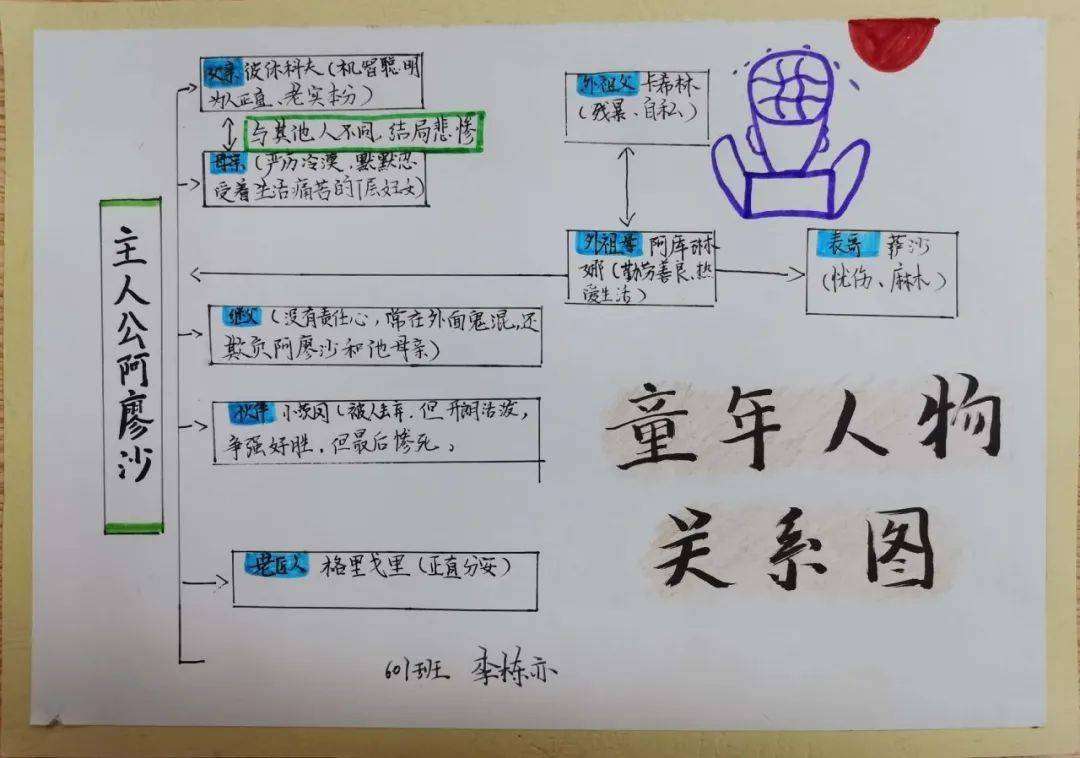 父亲 彼休科夫(机智聪明
为人正直、老实本分)
与其他人不同,结局悲惨
母亲 (严历冷漠,默默忍
受着生活痛苦的下层妇女)
外祖父 卡希林
(残暴、自私)
外祖母 阿库琳
娜(勤劳善良、热
爱生活)
表哥 萨沙
(忧伤、麻木)
主人公阿廖沙
继父 (没有责任心,常在外面鬼混,还
欺负阿廖沙和他母亲)
伙伴 小茨冈(被人弃,但开朗活泼,
争强好胜,但最后惨死。
老匠人 格里戈里(正直分安)
童年人物
关系图
601班 李栋亦